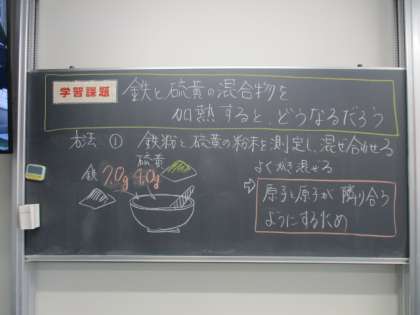 学習課題
鉄と硫黄の混合物を
加熱すると、どうなるだろう
方法 ① 鉄粉と硫黄の粉末を測定し、混ぜ合わせる
よくかき混ぜる
硫黄
鉄 7.0g 4.0g
⇨ 原子と原子が隣り合う
ようにするため